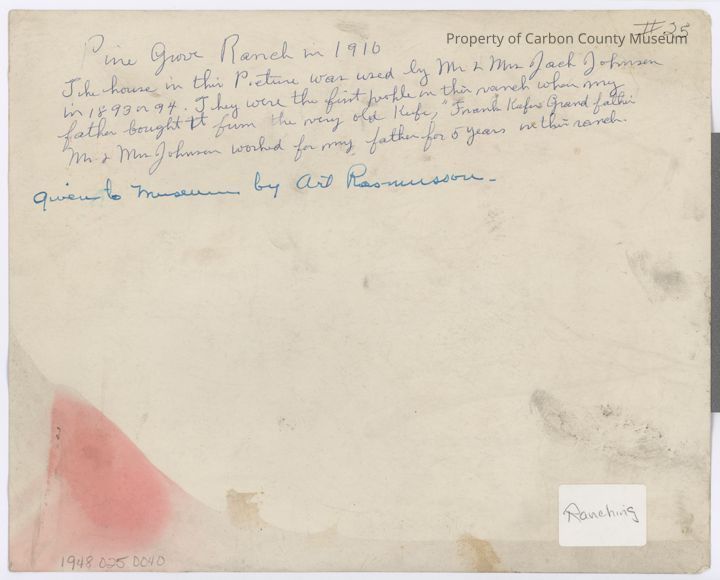 #35
Property of Carbon County Museum
Pine Grove Ranch in 1910
The house in this Picture was used by Mr & Mrs Jack Johnson
in 1893 or 94. They were the first people on this ranch when my
father bought it from the very old Kefe, "Frank Kefes Grand father
Mr & Mrs Johnson worked for my father for 5 years on this ranch.
given to museum by Art Rasmusson-
Ranching
1948 025 0040